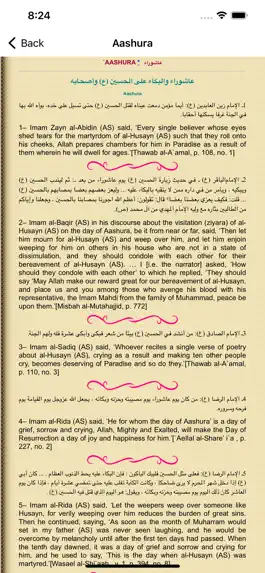 8:24
Back
Aashura
"AASHURA" عاشوراء
عاشوراء والبكاء على الحسين (ع) وأصحابه
Aashura
1ـ الإمام زين العابدين (ع): أيما مؤمن دمعت عيناه لقتل الحسين (ع) حتى تسيل على خده، بوأه الله بها
في الجنة غرفا يسكنها أحقابا.
1– Imam Zayn al-Abidin (AS) said, 'Every single believer whose eyes
shed tears for the martyrdom of al-Husayn (AS) such that they roll onto
his cheeks, Allah prepares chambers for him in Paradise as a result of
them wherein he will dwell for ages.'[Thawab al-A`amal, p. 108, no. 1]
2ـ الإمام الباقر (ع) ـ في حديث زيارة الحسين (ع) يوم عاشوراء من بعد ـ: ثم ليندب الحسين (ع)
ويبكيه ، ويأمر من في داره ممن لا يتقيه بالبكاء عليه ... وليعز بعضهم بعضا بمصابهم بالحسين (ع)
... قلت: فكيف يعزي بعضنا بعضا؟ قال: تقولون: أعظم الله أجورنا بمصابنا بالحسين ، وجعلنا وإياكم
من الطالبين بثأره مع وليه الإمام المهدي من آل محمد (ص).
2– Imam al-Baqir (AS) in his discourse about the visitation (ziyara) of al-
Husayn (AS) on the day of Aashura, be it from near or far, said, 'Then let
him mourn for al-Husayn (AS) and weep over him, and let him enjoin
weeping for him on others in his house who are not in a state of
dissimulation, and they should condole with each other for their
bereavement of al-Husayn (AS). ... I [i.e. the narrator] asked, 'How
should they condole with each other' to which he replied, 'They should
say 'May Allah make our reward great for our bereavement of al-Husayn,
and place us and you among those who avenge his blood with his
representative, the Imam Mahdi from the family of Muhammad, peace be
upon them.'[Misbah al-Mutahajjid, p. 772]
3ـ الإمام الصادق (ع): من أنشد في الحسين (ع) بيتا من شعر فبكى وأبكى عشرة فله ولهم الجنة.
3– Imam al-Sadiq (AS) said, 'Whoever recites a single verse of poetry
about al-Husayn (AS), crying as a result and making ten other people
cry, becomes deserving of Paradise and so do they.'[Thawab al-A`amal,
p. 110, no. 3]
4ـ الإمام الرضا (ع): من كان يوم عاشوراء يوم مصيبته وحزنه وبكائه ، يجعل الله عزوجل يوم القيامة يوم
فرحه وسروره.
4– Imam al-Rida (AS) said, 'He for whom the day of Aashura' is a day of
grief, sorrow and crying, Allah, Mighty and Exalted, will make the Day of
Resurrection a day of joy and happiness for him.'[`Aellal al-Share' i`a , p.
227, no. 2]
5ـ الإمام الرضا (ع): فعلى مثل الحسين فليبك الباكون ، فإن البكاء عليه يحط الذنوب العظام ... كان أبي
(ع) إذا دخل شهر المحرم لا يرى ضاحكا ، وكانت الكآبة تغلب عليه حتى تمضي عشرة أيام ، فإذا كان يوم
العاشر كان ذلك اليوم يوم مصيبته وحزنه وبكائه ، ويقول: هو اليوم الذي قتل فيه الحسين (ع).
5– Imam al-Rida (AS) said, 'Let the weepers weep over someone like
Husayn, for verily weeping over him reduces the burden of great sins.
Then he continued, saying, 'As soon as the month of Muharram would
set in my father (AS) was never seen laughing, and he would be
overcome by melancholy until after the first ten days had passed. When
the tenth day dawned, it was a day of grief and sorrow and crying for
him, and he used to say, 'This is the day when al-Husayn (AS) was
martyred.'[Wasael al-Shi`aah , v. 1, p. 394, no. 8]